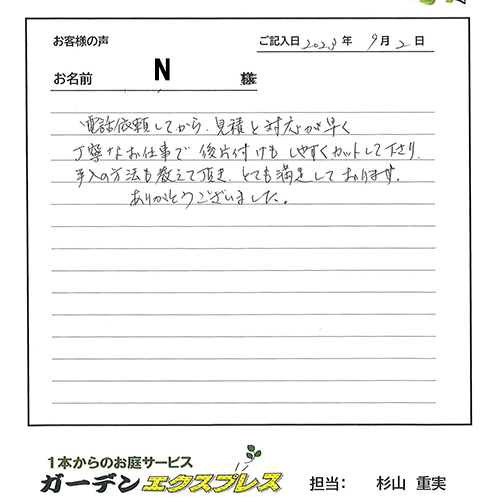 お客様の声 ご記入日 2023年 9月2日
お名前 N 様
電話依頼してから、見積と対応が早く
丁寧なお仕事で 後片付けも しやすくカットして下さり、
手入の方法も教えて頂き、とても満足しております。
ありがとうございました。
1本からのお庭サービス
ガーデンエクスプレス 担当： 杉山 重実